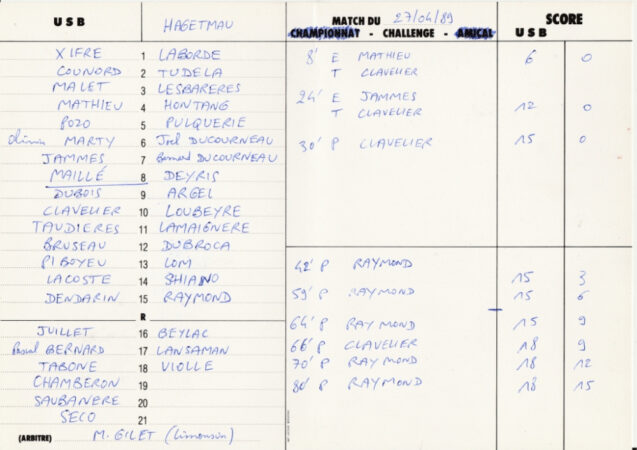 USB HAGETMAU MATCH DU 27/04/89 SCORE
CHAMPIONNAT - CHALLENGE - AMICAL USB
XIFRE 1 LABORDE 8' E MATHIEU 6 0
COUNORD 2 TUDELA T CLAVELIER
MALET 3 LESBARERES 24' E JAMMES
MATHIEU 4 HONTANG T CLAVELIER 12 0
POZO 5 PULQUERIE
MARTY 6 Joel DUCOURNEAU 30' P CLAVELIER 15 0
JAMMES 7 Bernard DUCOURNEAU
MAILLÉ 8 DEYRIS
DUBOIS 9 ARGEL
CLAVELIER 10 LOUBEYRE
TAUDIERES 11 LAMAIGNERE
BRUSEAU 12 DUBROCA
PIBOYEU 13 LOM 42' P RAYMOND
LACOSTE 14 SHIANO 15 3
DENDARIN 15 RAYMOND 59' P RAYMOND 15 6
R
JUILLET 16 BEYLAC 64' P RAYMOND 15 9
Pascal BERNARD 17 LANSAMAN 66' P CLAVELIER 18 9
TABONE 18 VIOLLE 70' P RAYMOND 18 12
CHAMBERON 19 80' P RAYMOND 18 15
SAUBANERE 20
SECO 21
(ARBITRE) M. GILET (Limousin)